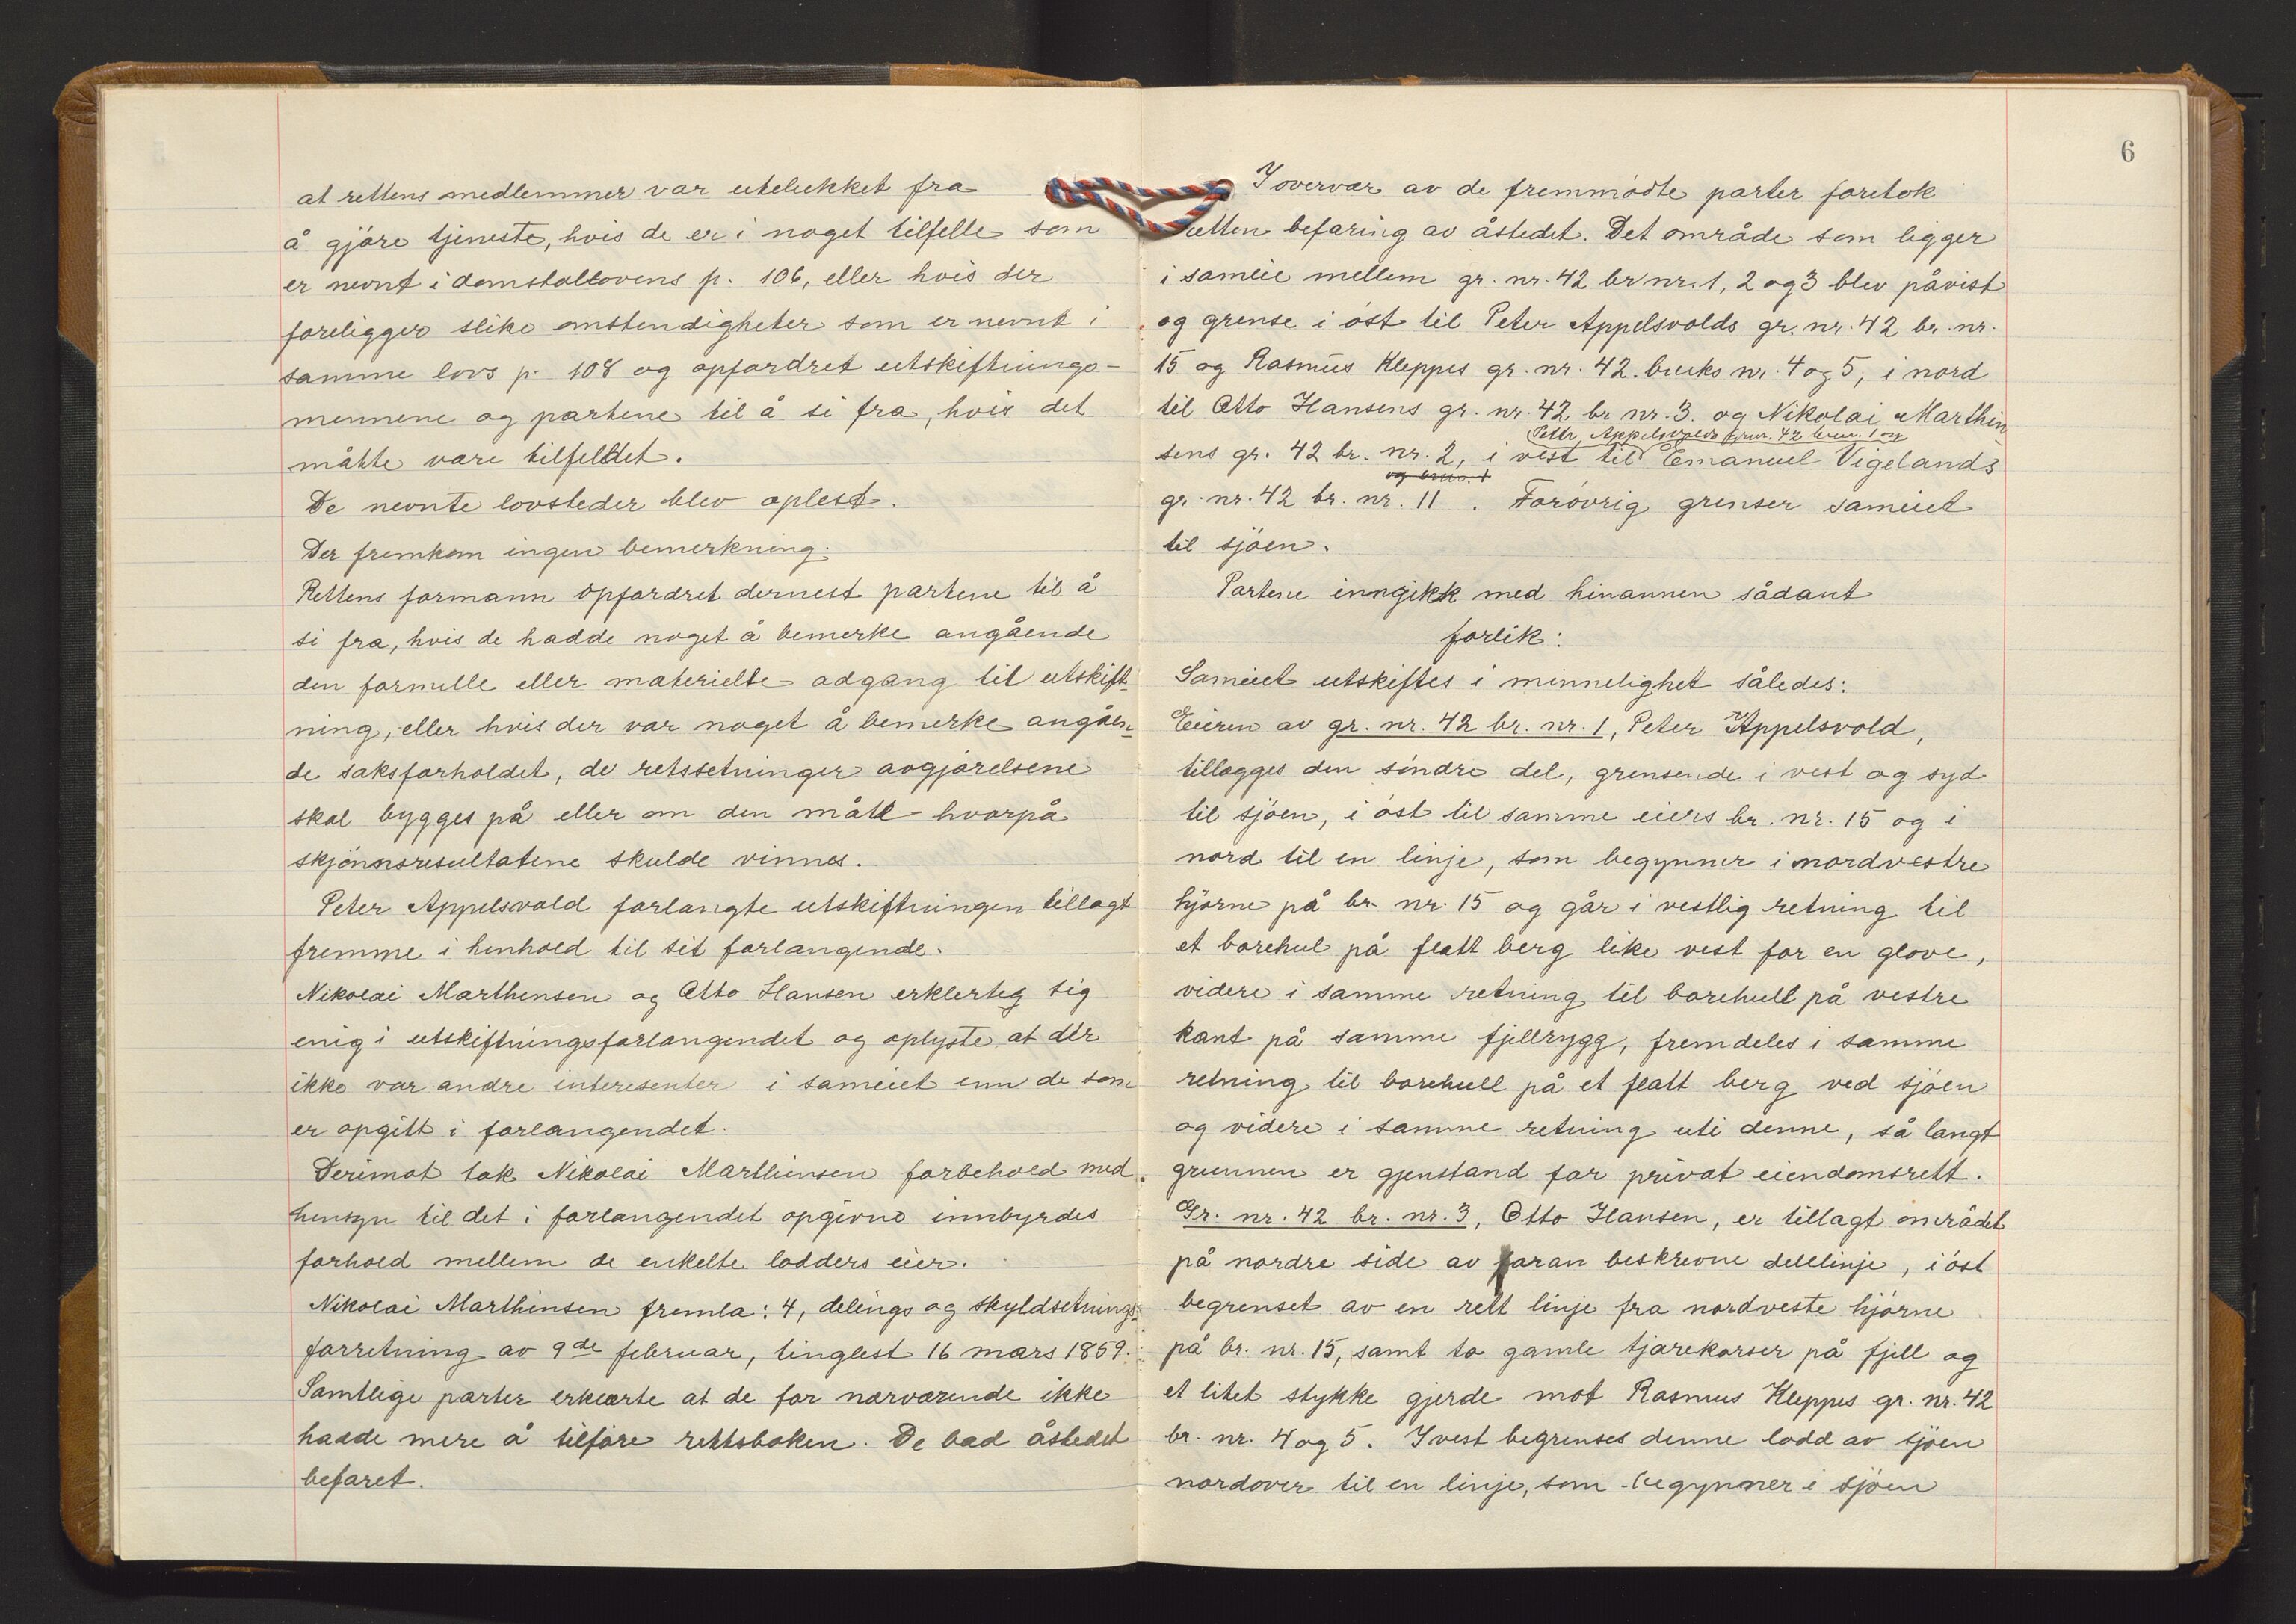 at rettens medlemmer var utelukket fra
å gjöre tjeneste, hvis de er i noget tilfelle som
er nevnt i domstollovens p. 106, eller hvis der
foreligger slike omstendigheter som er nevnt i
samme lovs p. 108 og opfordret utskiftnings-
mennene og partene til å si fra, hvis det
måtte være tilfelldet.
De nevnte lovsteder blev oplest.
Der fremkom ingen bemerkning.
Rettens formann opfordret dernest partene til å
si fra, hvis de hadde noget å bemerke angående
den formelle eller materielle adgang til utskift-
ning, eller hvis der var noget å bemerke angåen-
de saksforholdet, de retssetninger avgjörelsene
skal bygges på eller om den måte hvorpå
skjönnsresultatene skulde vinnes.
Peter Appelsvold forlangte utskiftningen tillagt
fremme i henhold til sit forlangende.
Nikolai Marthensen og Otto Hansen erklerte sig
enig i utskiftningsforlangendet og oplyste at der
ikke var andre interesenter i sameiet enn de som
er opgitt i forlangendet.
Derimot tok Nikolai Marthinsen forbehold med
hensyn til det i forlangendet opgivne innbyrdes
forhold mellem de enkelte lodders eier.
Nikolai Marthinsen fremla: 4, delings og skyldsetnings-
forretning av 9de februar, tinglest 16 mars 1859.
Samtlige parter erklærte at de for nærværende ikke
hadde mere å tilföre rettsboken. De bad åstedet
befaret.
6
I overvær av de fremmödte parter foretok
retten befaring av åstedet. Det område som ligger
i sameie mellem gr. nr. 42 br nr. 1, 2 og 3 blev påvist
og grense i öst til Peter Appelsvolds gr. nr. 42 br. nr.
15 og Rasmus Kleppes gr. nr. 42. bruks nr. 4 og 5, i nord
til Otto Hansens gr. nr. 42, br nr. 3. og Nikolai Marthin
Peter Appelsvolds grnr. 42 brnr. 1 og
sens gr. 42 br. nr. 2, i vest til Emanuel Vigelands
og brnr. 1
gr. nr. 42 br. nr. 11 . Forövrig grenser sameiet
til sjöen.
Partene inngikk med hinannen sådant
forlik:
Sameiet utskiftes i minnelighet således:
Eieren av gr. nr. 42 br. nr. 1, Peter Appelsvold,
tillægges den söndre del, grensende i vest og syd
til sjöen, i öst til samme eiers br. nr. 15 og i
nord til en linje, som begynner i nordvestre
hjörne på br. nr. 15 og går i vestlig retning til
et borehul på flatt berg like vest for en glove,
videre i samme retning til borehull på vestre
kant på samme fjellrygg, fremdeles i samme
retning til borehull på et flatt berg ved sjöen
og videre i samme retning uti denne, så langt
grunnen er gjenstand for privat eiendomsrett.
Gr. nr. 42 br. nr. 3, Otto Hansen, er tillagt området
på nordre side av foran beskrevne delelinje, i öst
begrenset av en rett linje fra nordveste hjörne
på br. nr. 15, samt to gamle tjærekorser på fjell og
et litet stykke gjerde mot Rasmus Kleppes gr. nr. 42
br. nr. 4 og 5. I vest begrenses denne lodd av sjöen
nordover til en linje, som begynner i sjöen